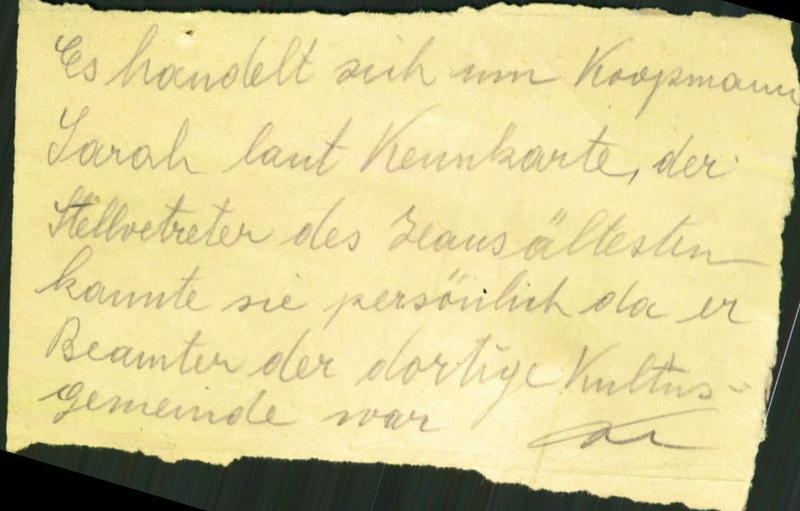 Es handelt sich um Koopmann
Sarah laut Kennkarte, der
Stellvetreter des Hausältesten
kannte sie persönlich da er
Beamter der dortige Kultus-
gemeinde war